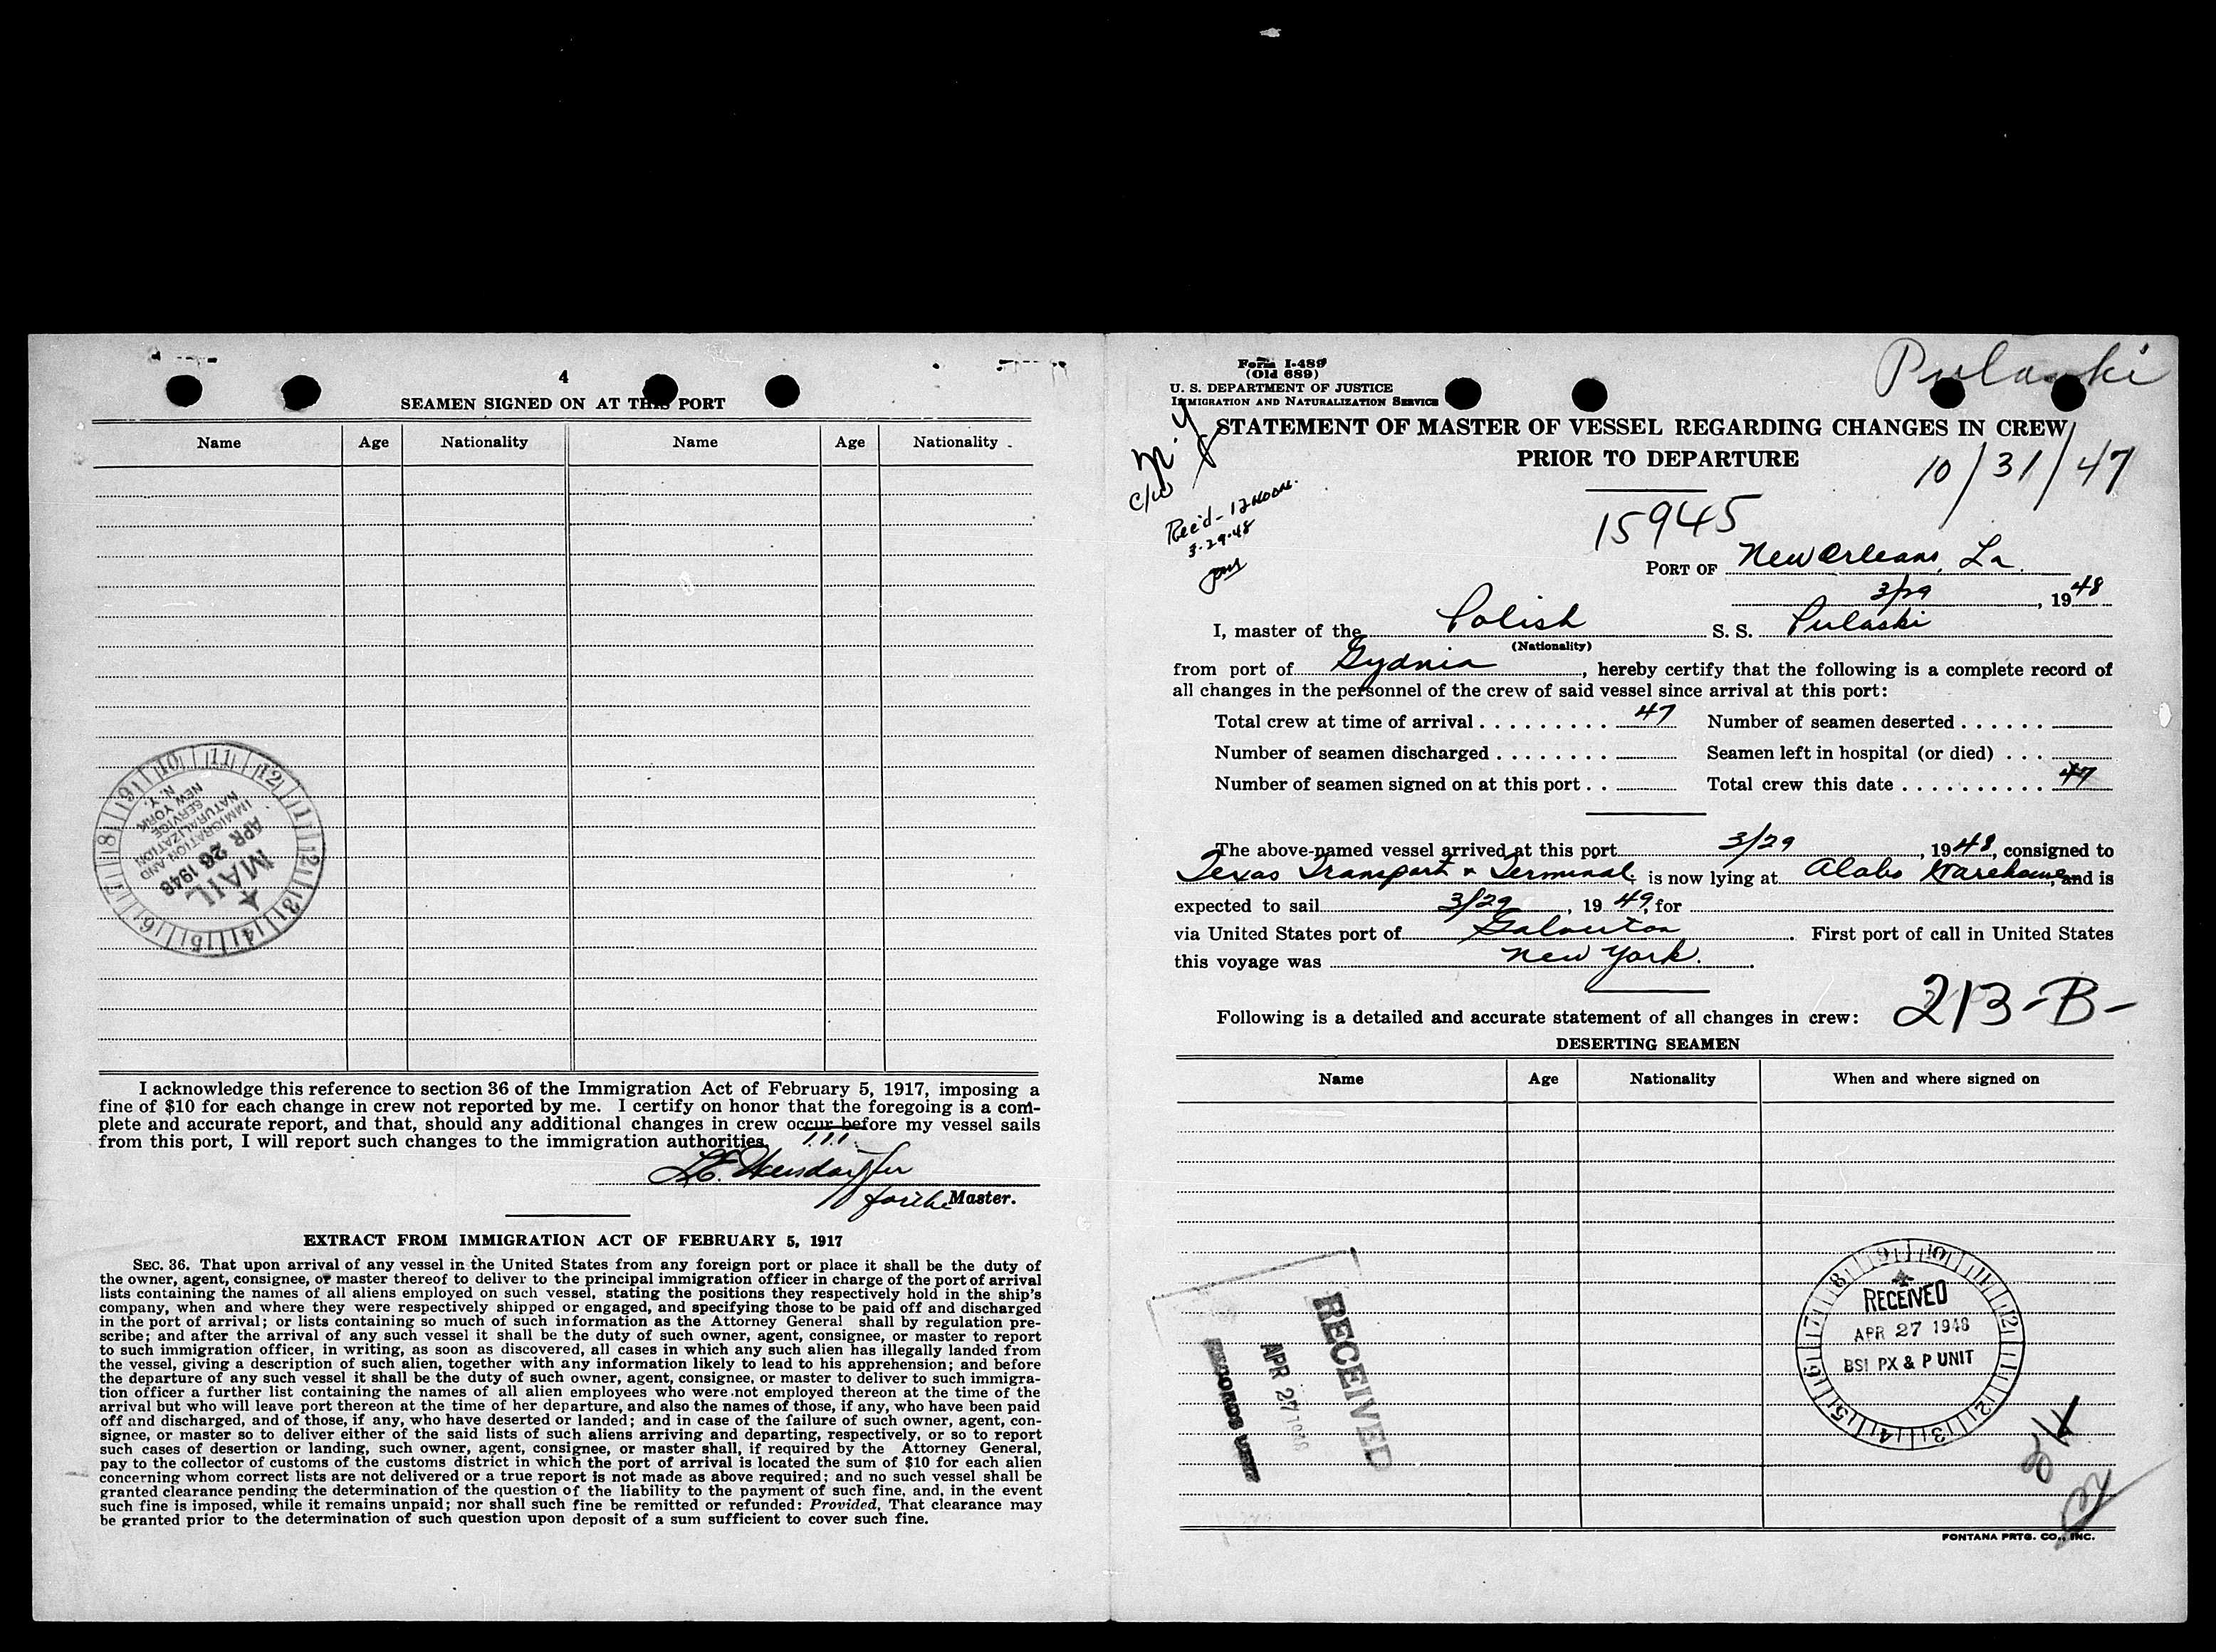 4
SEAMEN SIGNED ON AT THIS PORT
Name Age Nationality Name Age Nationality
10 11 12 1 2 3 4 5 6 7 8 9
IMMIGRATION AND
NATURALIZATION
SERVICE
NEW YORK
N. Y.
APR 26 1948
MAIL
I acknowledge this reference to section 36 of the Immigration Act of February 5, 1917, imposing a
fine of $10 for each change in crew not reported by me. I certify on honor that the foregoing is a com-
plete and accurate report, and that, should any additional changes in crew occur before my vessel sails
from this port, I will report such changes to the immigration authorities.
for the Master.
EXTRACT FROM IMMIGRATION ACT OF FEBRUARY 5, 1917
SEC. 36. That upon arrival of any vessel in the United States from any foreign port or place it shall be the duty of
the owner, agent, consignee, or master thereof to deliver to the principal immigration officer in charge of the port of arrival
lists containing the names of all aliens employed on such vessel, stating the positions they respectively hold in the ship's
company, when and where they were respectively shipped or engaged, and specifying those to be paid off and discharged
in the port of arrival; or lists containing so much of such information as the Attorney General shall by regulation pre-
scribe; and after the arrival of any such vessel it shall be the duty of such owner, agent, consignee, or master to report
to such immigration officer, in writing, as soon as discovered, all cases in which any such alien has illegally landed from
the vessel, giving a description of such alien, together with any information likely to lead to his apprehension; and before
the departure of any such vessel it shall be the duty of such owner, agent, consignee, or master to deliver to such immigra-
tion officer a further list containing the names of all alien employees who were not employed thereon at the time of the
arrival but who will leave port thereon at the time of her departure, and also the names of those, if any, who have been paid
off and discharged, and of those, if any, who have deserted or landed; and in case of the failure of such owner, agent, con-
signee, or master so to deliver either of the said lists of such aliens arriving and departing, respectively, or so to report
such cases of desertion or landing, such owner, agent, consignee, or master shall, if required by the Attorney General,
pay to the collector of customs of the customs district in which the port of arrival is located the sum of $10 for each alien
concerning whom correct lists are not delivered or a true report is not made as above required; and no such vessel shall be
granted clearance pending the determination of the question of the liability to the payment of such fine, and, in the event
such fine is imposed, while it remains unpaid; nor shall such fine be remitted or refunded: Provided, That clearance may
be granted prior to the determination of such question upon deposit of a sum sufficient to cover such fine.
Form I-489
(Old 689)
U. S. DEPARTMENT OF JUSTICE
IMMIGRATION AND NATURALIZATION SERVICE
Pulaski
STATEMENT OF MASTER OF VESSEL REGARDING CHANGES IN CREW
PRIOR TO DEPARTURE
10/31/47
N.Y
c/w
Rec'd - 12 noon.
3-29-48
15945
PORT OF New Orleans, La.
3/29, 1948
I, master of the Polish S. S. Pulaski
(Nationality)
from port of Gydnia, hereby certify that the following is a complete record of
all changes in the personnel of the crew of said vessel since arrival at this port:
Total crew at time of arrival . . . . . . . . . 47 Number of seamen deserted . . . . . .
Number of seamen discharged . . . . . . . . Seamen left in hospital (or died) . . .
Number of seamen signed on at this port . . Total crew this date . . . . . . . . . . 47
The above-named vessel arrived at this port 3/29, 1948, consigned to
Texas Transport & Terminal, is now lying at Alabo Warehouse, and is
expected to sail 3/29, 1949, for
via United States port of Galveston. First port of call in United States
this voyage was New York.
213-B-
Following is a detailed and accurate statement of all changes in crew:
DESERTING SEAMEN
Name Age Nationality When and where signed on
RECEIVED
APR 27 1948
RECORDS UNIT
9 10 11 12 1 2 3 4 5 6 7 8
RECEIVED
APR 27 1948
BSI PX & P UNIT
FONTANA PRTG. CO., INC.